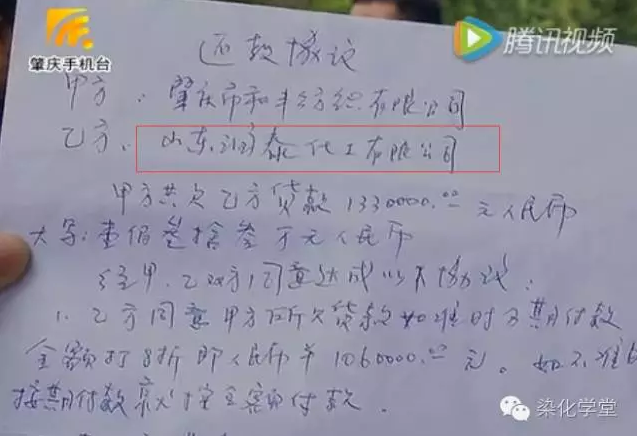 肇庆手机台
腾讯视频
还款协议
甲方:肇庆市和丰纺织有限公司
乙方、山东润泰化工有限公司
甲方共欠乙方货款1330000.00元人民币
大写:壹佰叁拾叁万元人民币
经甲、乙双方同意达成以下协议:
1. 乙方同意甲方所欠货款如准时 期付款
金额打8折即人民币 1060000.00元。如不准
按期付款就按全额付款.
染化学堂